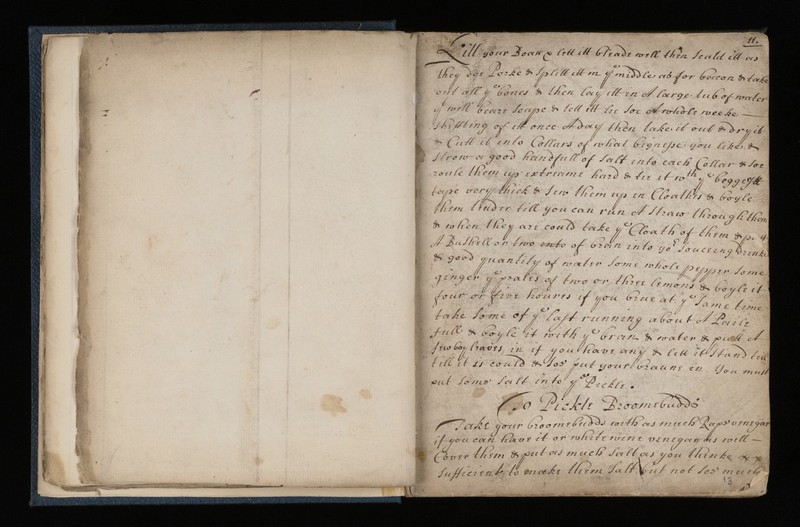 11.
Kill your Boar & lett itt bleade well then scald itt as
they doe Porke & splitt itt in yᵉ middle as for bacon & take
out all yᵉ bones & then lay itt in A large tub of water
yᵗ will beare scape & lett itt lie soe A whole weeke —
shifting of itt once A day then take it out & dry it
& Cutt it into Collars of what bignesse you like &
strow a good handfull of salt into each Collar & soe
roule them up extreame hard & tie it wᵗʰ yᵉ biggest
tape very thick & sew them up in Cloaths & boyle
them tinder till you can run A straw through them
& when they are could take yᵉ Cloath of them & put
A Bushell or two of bran into yoʳ souceing drinke
& good quantity of water some whole pepper some
ginger yᵉ peales of two or three lemons & boyle it
four or five houres if you brue at yᵉ same time
take some of yᵉ last running about A
full & boyle it with yᵉ bran & water & putt A
few bay leaves in if you have any & lett it stand
till it is could & soe put your braune in You must
put some salt into yᵉ Pickle .
To Pickle Broomebudds
Take your broomebudds with as much vinegar
if you can have it or white wine venegar as will —
Cover them & put as much salt as you thinke
Sufficient to make them salt but not soe much
13